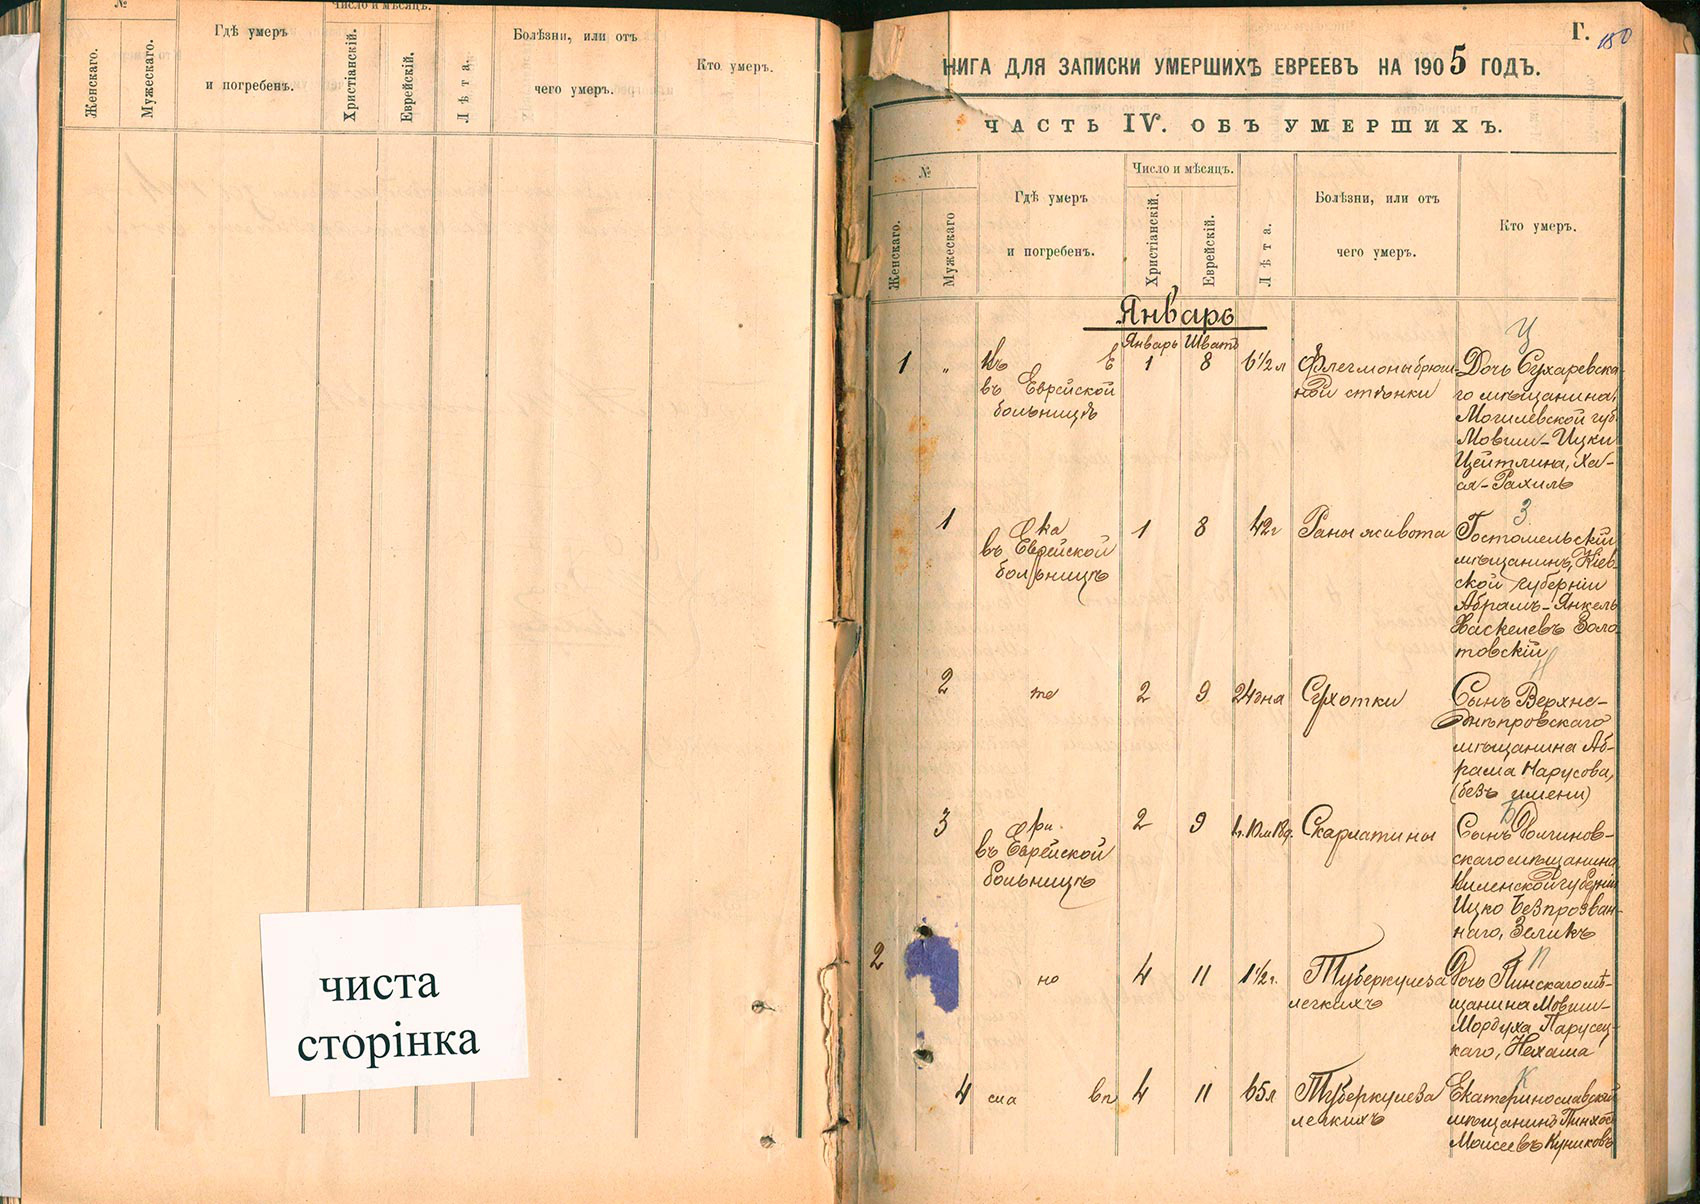 №
Число и мѣсяцъ.
Женскаго.
Мужескаго.
Гдѣ умеръ
и погребенъ.
Христіанскій.
Еврейскій.
Лѣта.
Болѣзни, или отъ
чего умеръ.
Кто умеръ.
чиста
сторінка
Г.
150
НИГА ДЛЯ ЗАПИСКИ УМЕРШИХЪ ЕВРЕЕВЪ НА 1905 ГОДЪ.
ЧАСТЬ IV. ОБЪ УМЕРШИХЪ.
№
Женскаго.
Мужескаго
Гдѣ умеръ
и погребенъ.
Число и мѣсяцъ.
Христіанскій.
Еврейскій.
Лѣта.
Болѣзни, или отъ
чего умеръ.
Кто умеръ.
Январь
Январь Шватъ
Ц
1 „
въ Еврейской
больницѣ
1 8 6½ л
Флегмоны брюш-
ной стѣнки
Дочь Сухаревска-
го мѣщанина,
Могилевской губ.
Мовши-Ицки
Цейтлина, Ха-
ая-Рахиль
З
1
ка
въ Еврейской
больницѣ
1 8 42 г
Раны живота
Гостомельскій
мѣщанинъ, Кіев-
ской губерніи
Абрамъ-Янкель
Хаскелевъ Золо-
товскій
Н
2 те 2 9 24 дня Сухотки
Сынъ Верхне-
днѣпровскаго
мѣщанина Аб-
рама Нарусова,
(безъ имени)
Б
3
ри
въ Еврейской
больницѣ
2 9 Скарлатины
Сынъ Долгинов-
скаго мѣщанина
Виленской губерніи
Ицко Безпрозван-
наго, Зеликъ
П
2 но 4 11 1½ г.
Туберкулеза
легкихъ
Дочь Пинскаго мѣ-
щанина Мовши-
Мордуха Парусец-
каго, Нехама
К
4 сла вп 4 11 65 л
Туберкулеза
легкихъ
Екатеринославскій
мѣщанинъ Пинхосъ
Моисеевъ Куниковъ